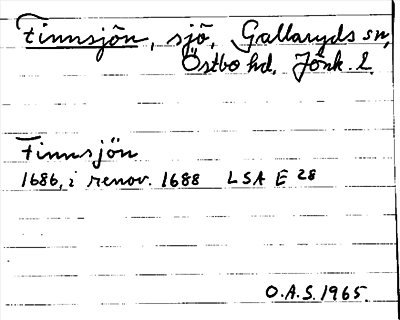 Finnsjön, sjö, Gallaryds sn,
Östbo hd. Jönk. L.
Finnsjön
1686, i renov. 1688 LSA E 28
O.A.S. 1965.